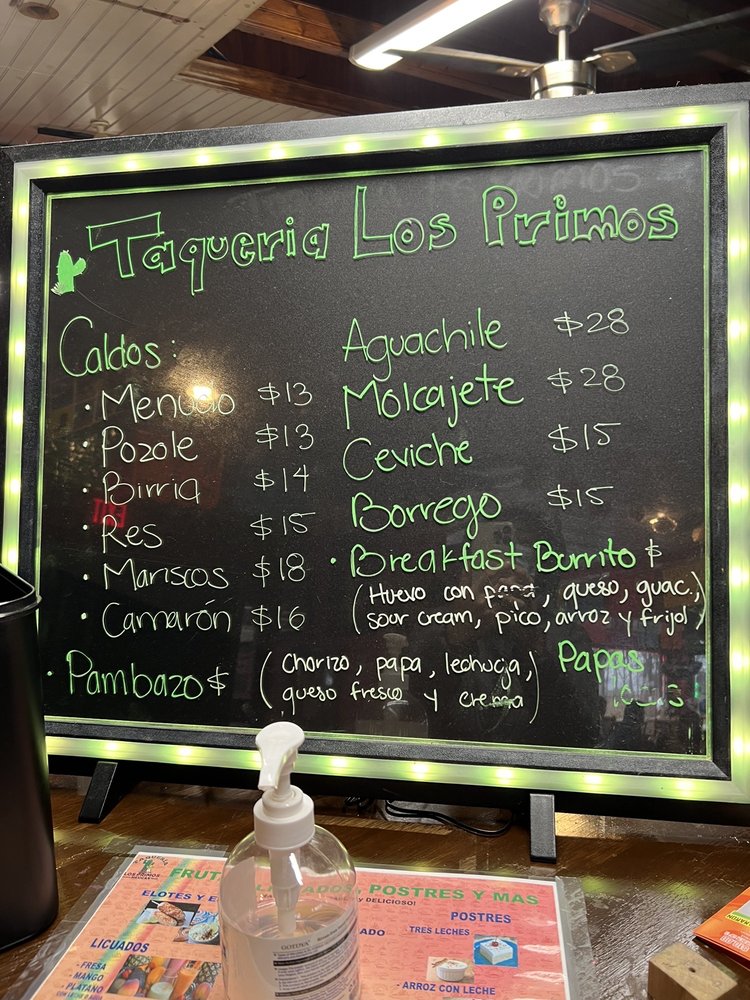 Taqueria Los Primos
Caldos:
· Menudo $13
Pozole $13
· Birria $14
· Res $15
· Mariscos $18
· Camarón $16
Aguachile $28
Molcajete $28
Ceviche $15
Borrego $15
· Breakfast Burrito $
(Huevo con papa, queso, guac.,
sour cream, pico, arroz y frijol)
· Pambazo $
(Chorizo, papa, lechuga,
queso fresco y crema)
Papas
LOS PRIMOS
ELOTES Y
POSTRES Y MAS
Y DELICIOSO!
LICUADOS
· FRESA
· MANGO
· PLATANO
POSTRES
· TRES LECHES
· ARROZ CON LECHE